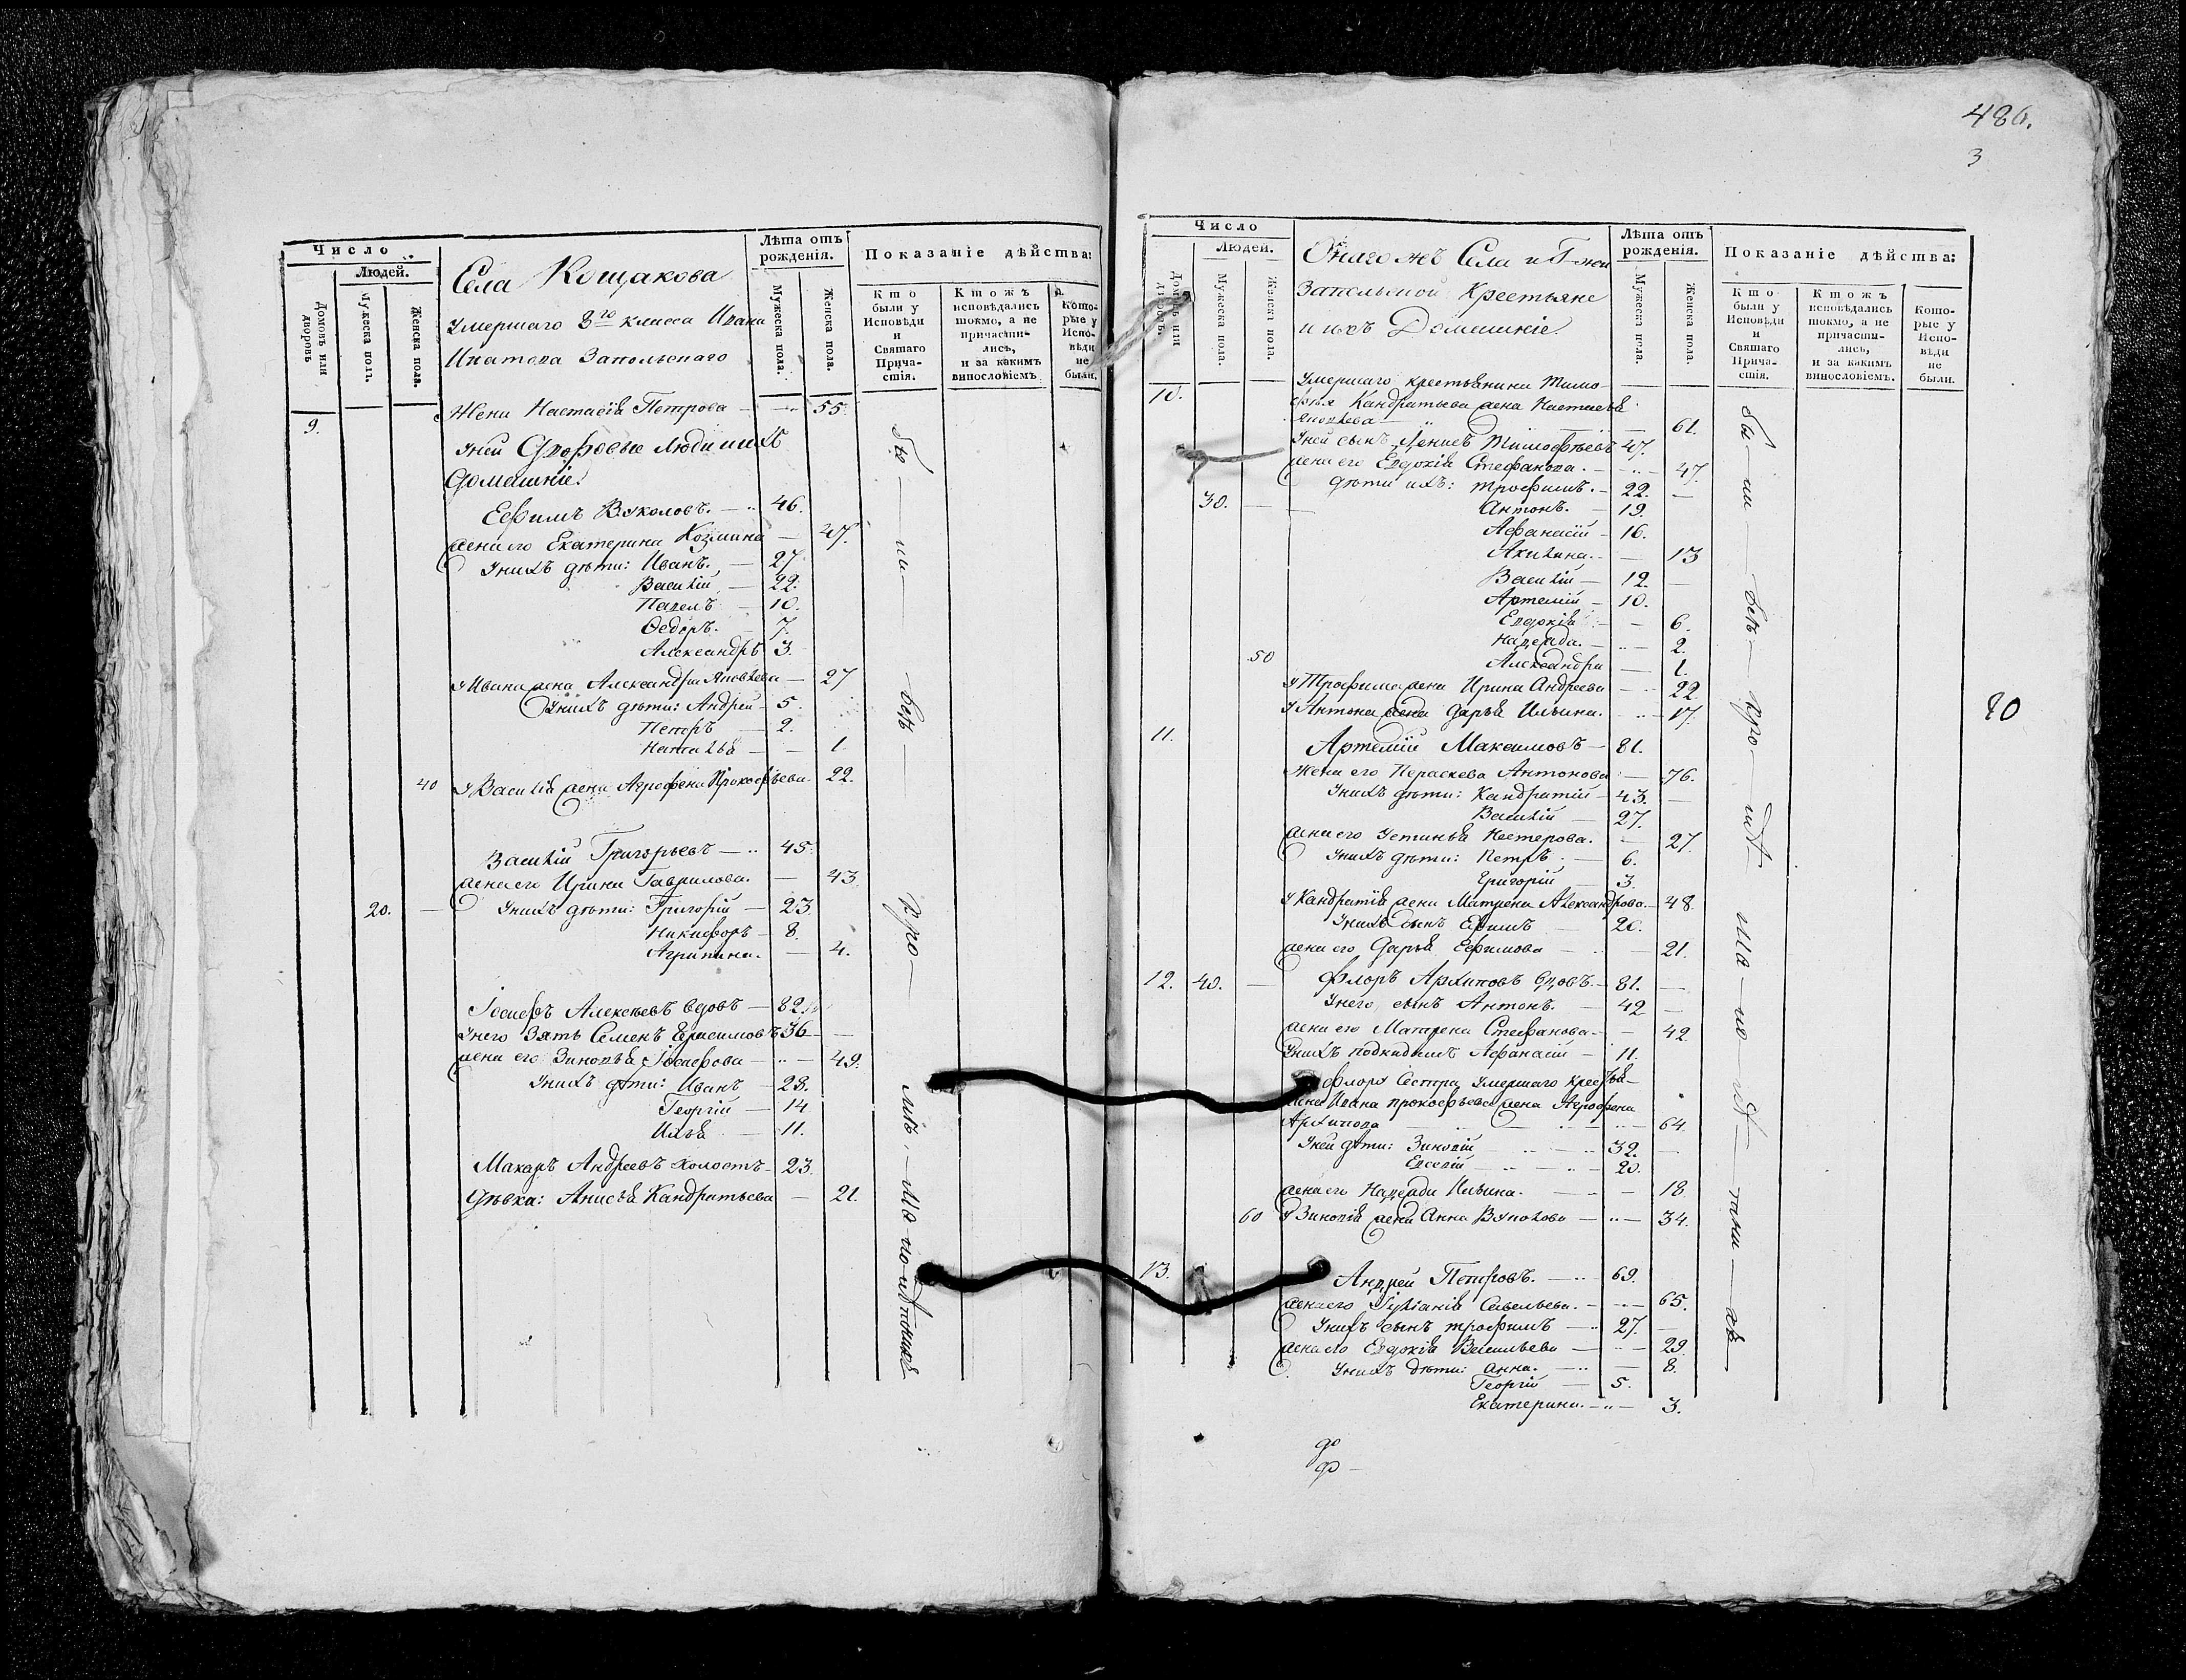 Число
Людей.
Домовъ или дворовъ
Мужеска полъ.
Женска пола.
Села Кощакова
умершаго 8го класса Ивана
Ипатова Запольскаго
Лѣта отъ рожденія.
Мужеска пола.
Женска пола.
Показаніе дѣйства:
Кто были у Исповѣди и Святаго Причастія.
Ктожъ исповѣдались токмо, а не причастились, и за какимъ винословіемъ
Которые у Исповѣди не были.
9.
Жена Настасія Петрова — 55.
Уней Дворовые люди и ихъ
Домашніе.
Ефимъ Вуколовъ. — 46.
жена его Екатерина Козмина — 47.
Унихъ дѣти: Иванъ. — 27
Василій — 22.
Павелъ — 10.
Ѳедоръ. 7.
Александръ 3.
у Ивана жена Александра Яковлева — 27
Унихъ дѣти: Андрей 5.
Петръ 2.
Наталья — 1.
40 у Василія жена Агрофена Прокофьева 22.
Василій Григорьевъ — 45.
жена его Ирина Гаврилова. — 43.
20. — Унихъ дѣти: Григорій — 23.
Никифоръ — 8.
Агрипина. — 4.
Іосифъ Алексѣевъ вдовъ — 82.
Унего зять Семенъ Герасимовъ 36 —
жена его Зиновья Іосифова — 49.
Унихъ дѣти: Иванъ — 28.
Георгій — 14
Илья — 11.
Макаръ Андреевъ холостъ — 23.
Дѣвка: Анисья Кандратьева — 21.
бы — ли — всѣ
486.
3
Число
Людей.
Домовъ или дворовъ.
Мужеска пола.
Женска пола.
Онаго жъ Села и Г-жи
Запольской Крестьяне
и ихъ Домашніе
Лѣта отъ рожденія.
Мужеска пола.
Женска пола.
Показаніе дѣйства:
Кто были у Исповѣди и Святаго Причастія.
Ктожъ исповѣдались токмо, а не причастились, и за какимъ винословіемъ.
Которые у Исповѣди не были.
10. Умершаго крестьянина Тимо
фея Кандратьева жена Настасья
Яковлева — 61.
Уней сынъ Денисъ Тимофѣевъ 47.
жена его Евдокія Стефанова. — 47.
дѣти ихъ: Трофимъ. — 22. —
30. — Антонъ. — 19.
Афанасій — 16.
Акилина. — 13
Василій — 12. —
Артемій — 10.
Евдокія — 6.
Надежда. — 2.
50 Александра — 1.
у Трофима жена Ирина Андреева — 22.
у Антона жена Дарья Ильина. — 17.
11. Артемій Максимовъ — 81.
Жена его Параскева Антонова — 76.
Унихъ дѣти: Кандратій — 43. —
Василій — 27.
жена его Устинья Нестерова. — 27.
Унихъ дѣти: Петръ — 6.
Григорій — 3.
у Кандратія жена Матрена Александрова — 48.
Унихъ сынъ Ефимъ — 20.
жена его Дарья Ефимова — 21.
12. 40. — Флоръ Архиповъ вдовъ. — 81. —
Унего сынъ Антонъ. — 42 —
жена его Матрена Стефанова — 42
Унихъ подкидышъ Афанасій — 11.
у Флора Сестра умершаго Крестья-
нина Ивана Прокофьева жена Агрофена
Архипова — 64.
Уней дѣти: Зиновій — 32. —
Евсевій — 20.
жена его Надежда Ильина. — 18
60 у Зиновія жена Анна Вуколова — 34.
13. Андрей Петровъ. — 69.
жена его Іуліанія Савельева. — 65.
Унихъ сынъ Трофимъ — 27. —
жена его Евдокія Васильева — 29.
Унихъ дѣти: Анна. — 8.
Георгій — 5.
Екатерина. — 3.
бы — ли — всѣ
20